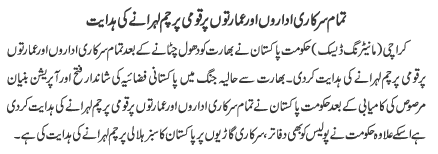 تمام سرکاری اداروں اور عمارتوں پر قومی پرچم لہرانے کی ہدایت
کراچی (مانیٹرنگ ڈیسک) حکومت پاکستان نے بھارت کو دھول چٹانے کے بعد تمام سرکاری اداروں اور عمارتوں
پر قومی پرچم لہرانے کی ہدایت کردی۔ بھارت سے حالیہ جنگ میں پاکستانی فضائیہ کی شاندار فتح اور آپریشن بنیان
مرصوص کی کامیابی کے بعد حکومت پاکستان نے تمام سرکاری اداروں اور عمارتوں پر قومی پرچم لہرانے کی ہدایت کردی
ہے اسکے علاوہ حکومت نے پولیس کو بھی دفاتر، سرکاری گاڑیوں پر پاکستان کا سبز ہلالی پرچم لہرانے کی ہدایت کی ہے۔